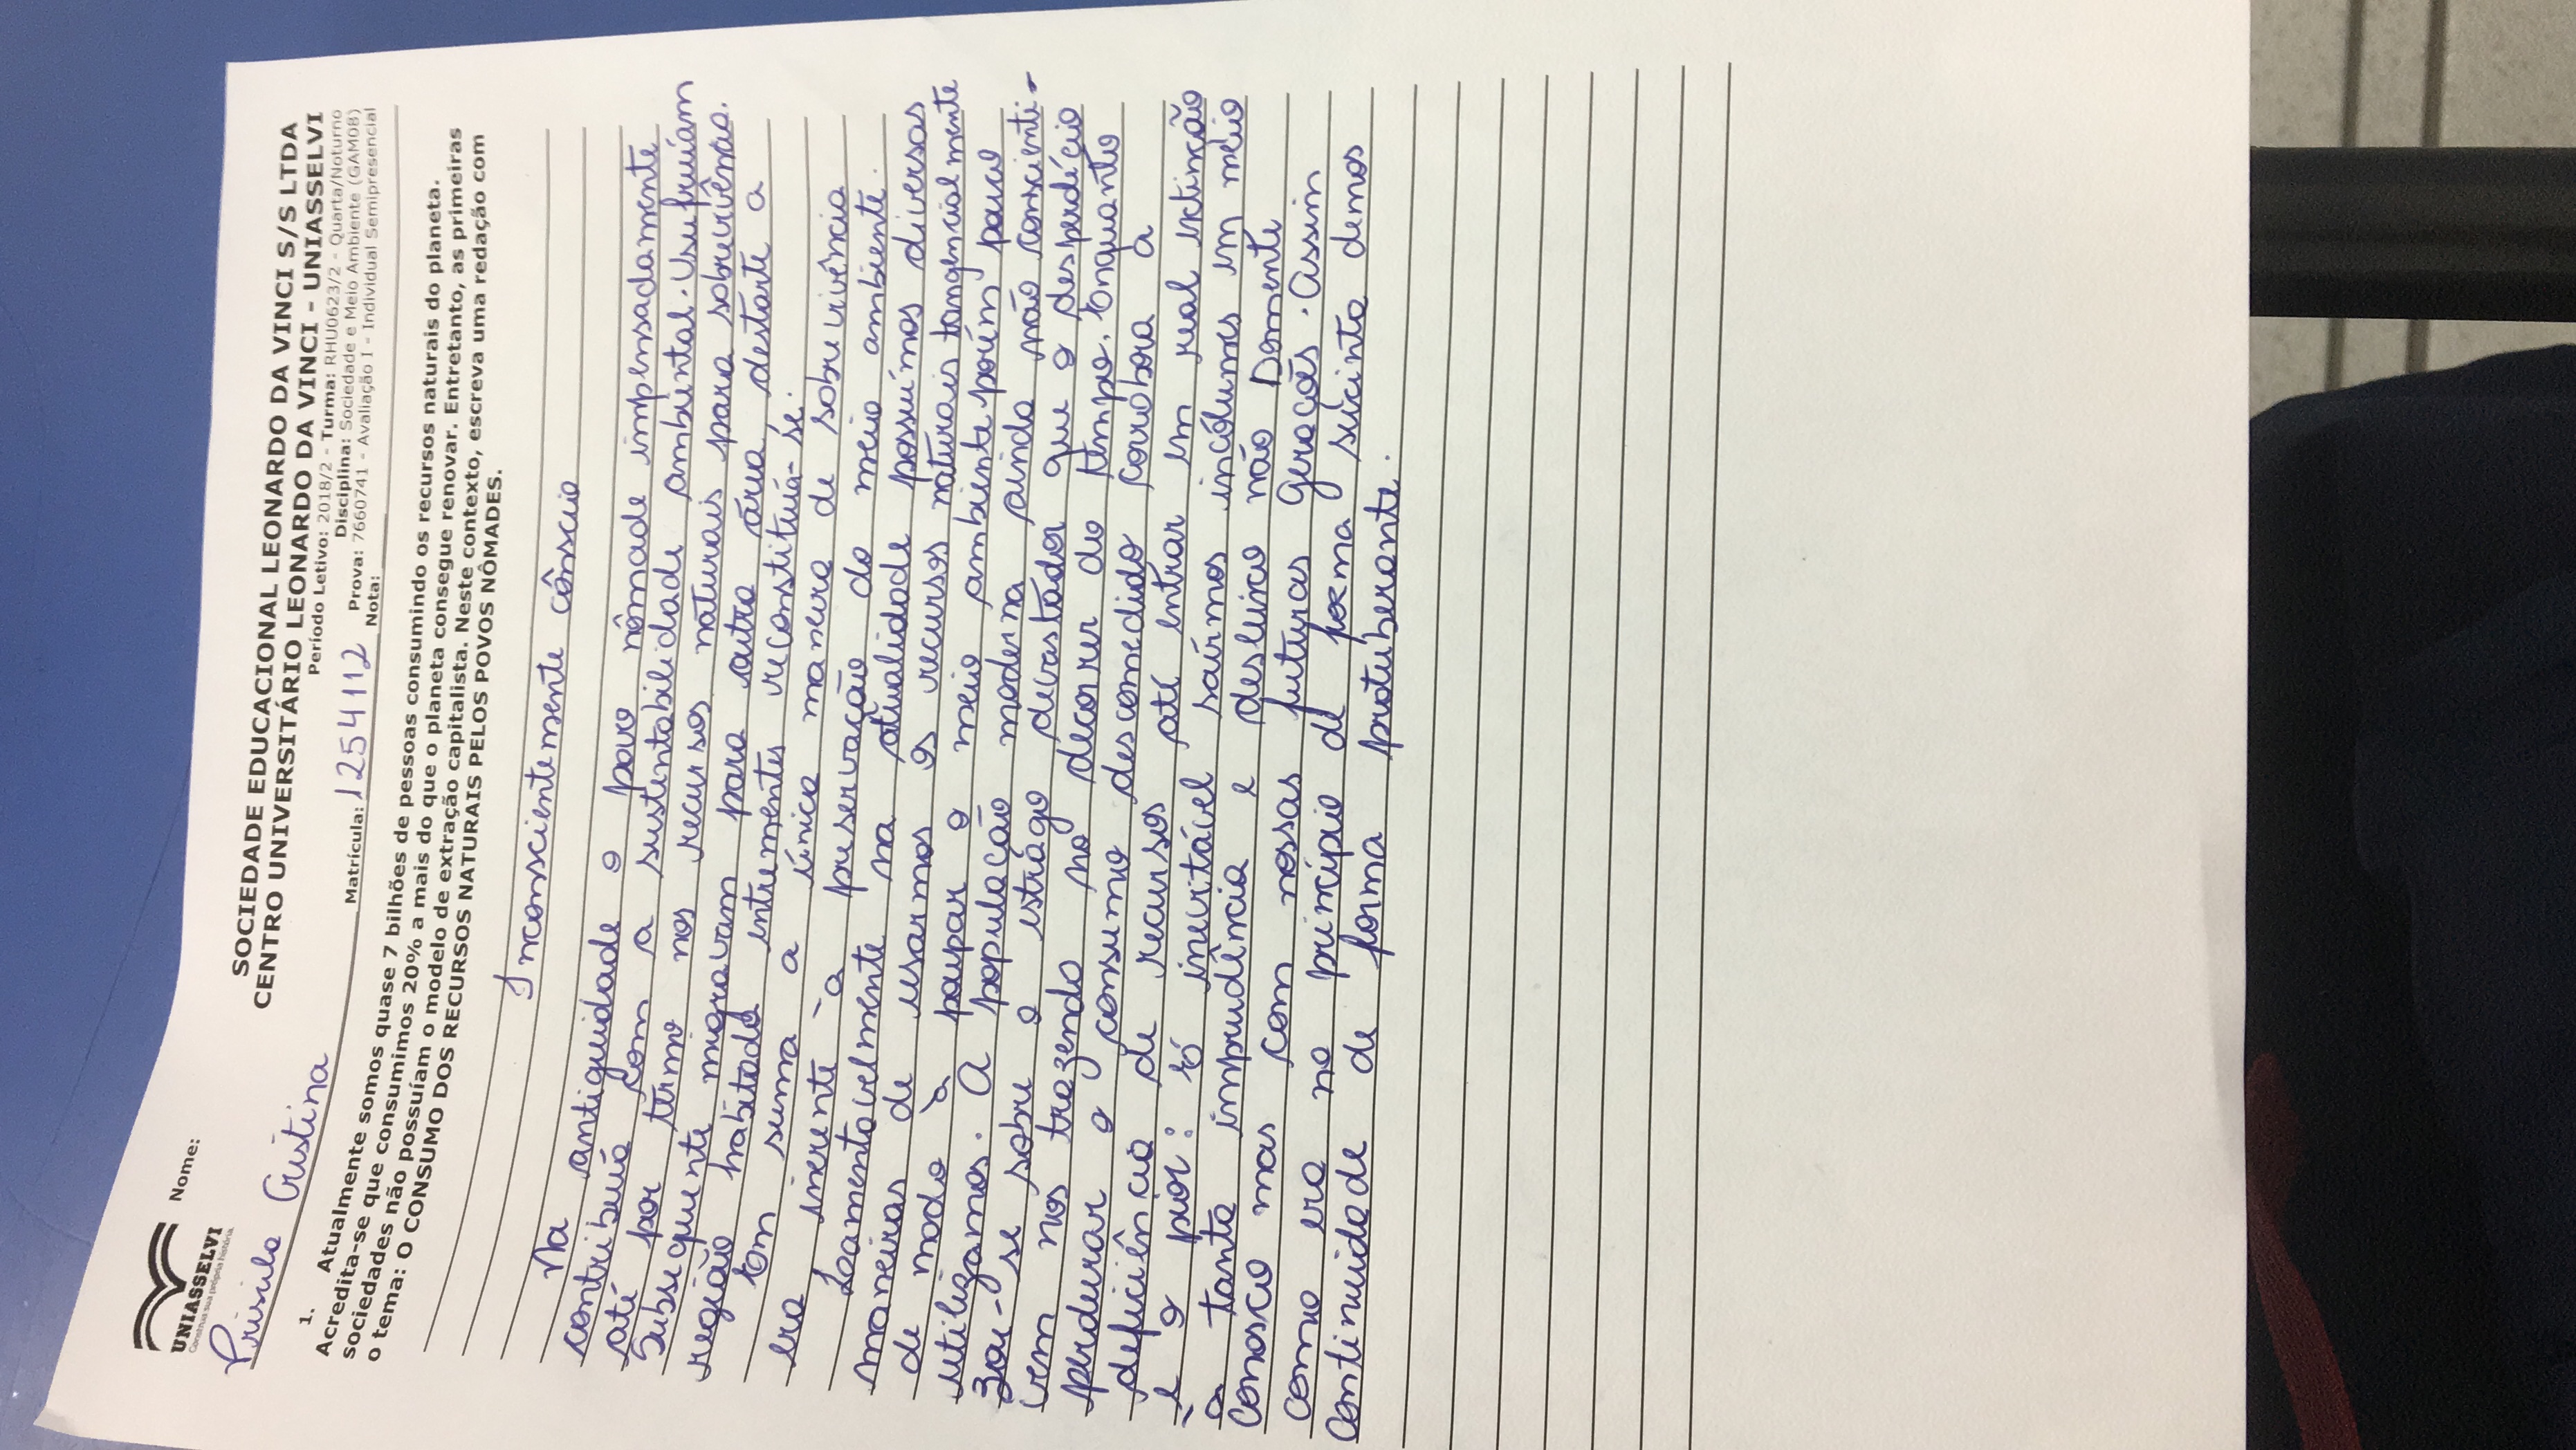 UNIASSELVI
Construa sua própria história
SOCIEDADE EDUCACIONAL LEONARDO DA VINCI S/S LTDA
CENTRO UNIVERSITÁRIO LEONARDO DA VINCI - UNIASSELVI
Período Letivo: 2018/2 - Turma: RHU0623/2 - Quarta/Noturno
Disciplina: Sociedade e Meio Ambiente (GAM08)
Prova: 7660741 - Avaliação I - Individual Semipresencial
Nome: Priscila Cristina Matrícula: 1254112 Nota:
1. Atualmente somos quase 7 bilhões de pessoas consumindo os recursos naturais do planeta.
Acredita-se que consumimos 20% a mais do que o planeta consegue renovar. Entretanto, as primeiras
sociedades não possuíam o modelo de extração capitalista. Neste contexto, escreva uma redação com
o tema: O CONSUMO DOS RECURSOS NATURAIS PELOS POVOS NÔMADES.
Inconscientemente cônscio
Na antiguidade o povo nômade impensadamente
contribuía com a sustentabilidade ambiental. Usufruíam
até por termo nos recursos naturais para sobrevivência.
Subsequente migravam para outra área destarte a
região habitada entrementes reconstituía-se.
Em suma a única maneira de sobrevivência
era inerente à preservação do meio ambiente.
Lamentavelmente na atualidade possuímos diversas
maneiras de usarmos os recursos naturais tangencialmente
de modo à poupar o meio ambiente porém pouco
utilizamos. A população moderna ainda não conscienti-
zou-se sobre o estrago devastador que o desperdício
vem nos trazendo no decorrer do tempo. Enquanto
perdurar o consumo descomedido corrobora à
deficiência de recursos até entrar em real extinção
e o pior: é inevitável sairmos incólumes em meio
à tanta imprudência e desleixo não Somente
conosco mas com nossas futuras gerações. Assim
como era no princípio de forma sucinta demos
continuidade de forma protuberante.